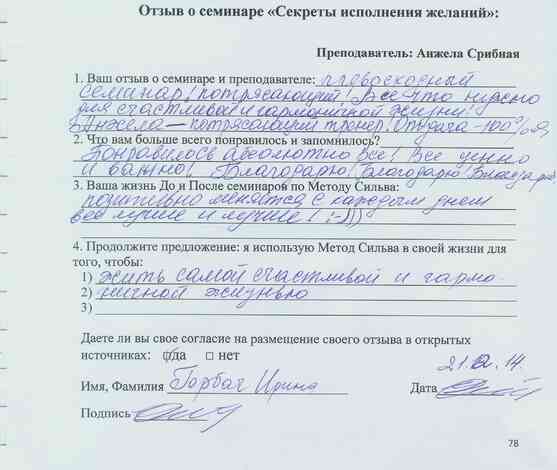 Отзыв о семинаре «Секреты исполнения желаний»:
Преподаватель: Анжела Срибная
1. Ваш отзыв о семинаре и преподавателе: превосходный
семинар! потрясающий! Все что нужно
для счастливой и гармоничной жизни!
Анжела – потрясающий тренер! Отдача – 100%
2. Что вам больше всего понравилось и запомнилось?
Понравилось абсолютно все! Все ценно
и важно! Благодарю! Благодарю! Благодарю
3. Ваша жизнь До и После семинаров по Методу Сильва:
позитивно меняется с каждым днем
все лучше и лучше! :-)))
4. Продолжите предложение: я использую Метод Сильва в своей жизни для
того, чтобы:
1) жить самой счастливой и гармо-
2) ничной жизнью
3)
Даете ли вы свое согласие на размещение своего отзыва в открытых
источниках: □да □ нет
Имя, Фамилия Горбач Ирина Дата 14.
Подпись
78